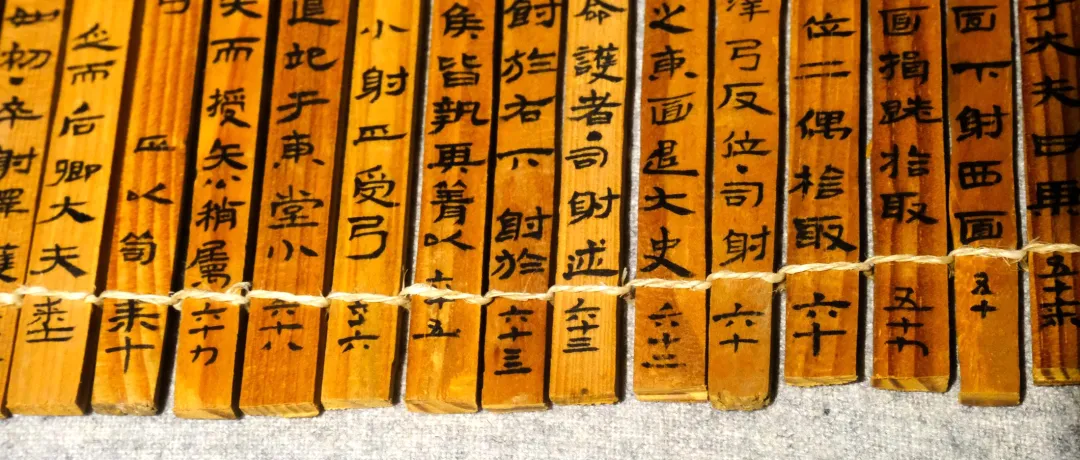 于大夫曰再 五十桼
面下射西面 五十
面揖拾取 五十九
位二偶拾取 六十
弓反位·司射 六十
之東面退大史 六十二
命護者·司射述 六十三
射於右下射於 六十三
侯皆執再以 六十五
小射正受弓 六十六
退于東堂小 六十八
矢而授矢公稍屬 六十九
弓 正以笥 桼十
而后卿大夫 桼十一
如初·卒射釋